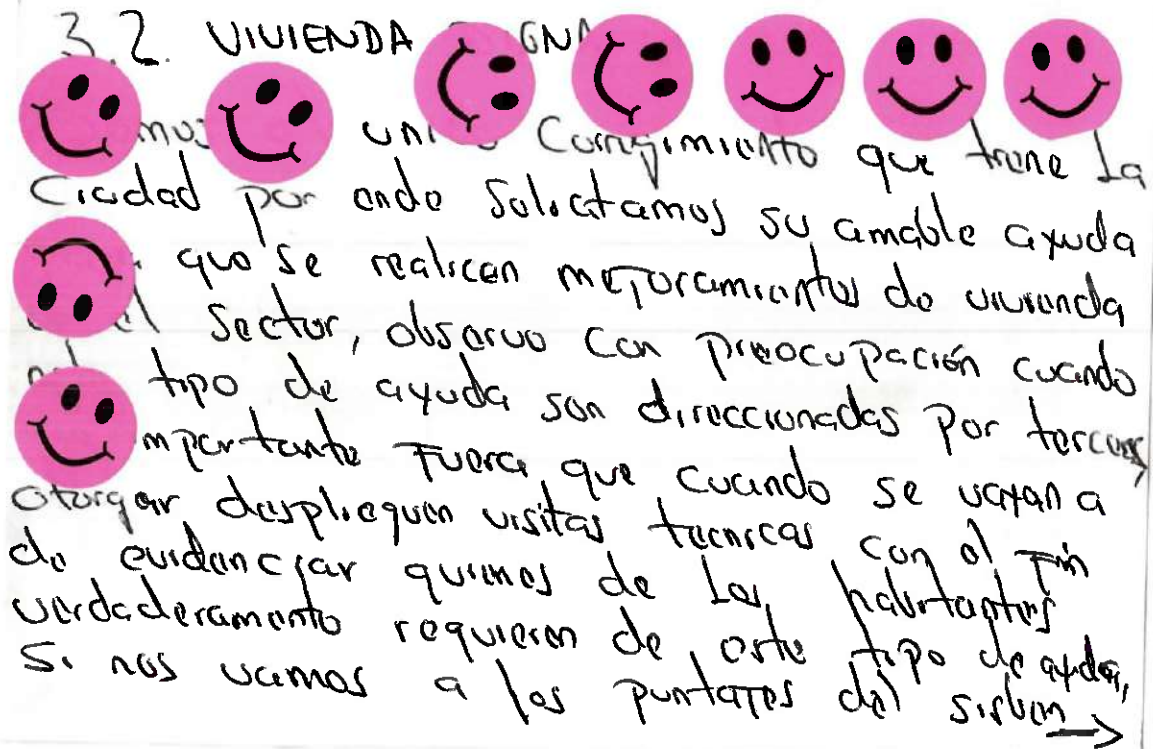 3.2. VIVIENDA
Corregimiento que tiene La
Ciudad por ende Solicitamos su amable ayuda
que se realicen mejoramientos de vivienda
Sector, observo con preocupación cuando
tipo de ayuda son direccionadas por terceros,
fuera que cuando se vayan a
otorgar desplieguen visitas tecnicas con el fin
de evidenciar quienes de los habitantes
verdaderamente requieren de este tipo de ayudas,
Si nos vamos a los puntajes del sisben →